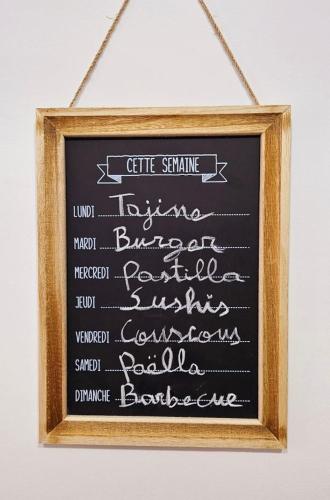 CETTE SEMAINE
LUNDI Tajine
MARDI Burger
MERCREDI Pastilla
JEUDI Sushis
VENDREDI Couscous
SAMEDI Paëlla
DIMANCHE Barbecue